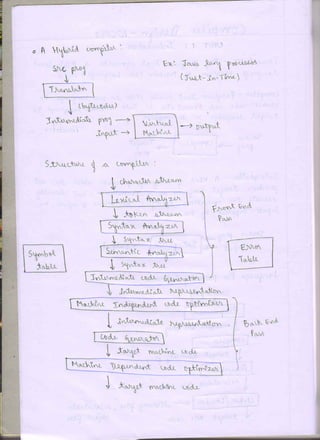 A Hybrid compiler :
Ex: Java lang processor
(Just-In-Time)
Src prog
Translator
(bytecodes)
Intermediate prog → Virtual Machine → output
input →
Structure of a compiler :
character stream
Lexical Analyzer
token stream
Syntax Analyzer
Syntax tree
Semantic Analyzer
Syntax tree
Intermediate code Generator
Intermediate representation
Machine Independent code optimizer
Intermediate representation
Code Generator
target machine code
Machine Dependent code optimizer
target machine code
Symbol table
Front End Pass
Error Table
Back End Pass